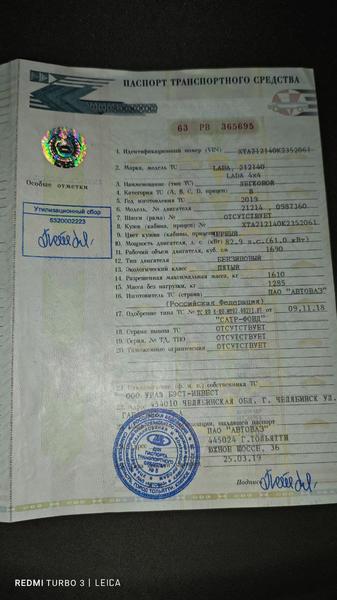 ПАСПОРТ ТРАНСПОРТНОГО СРЕДСТВА
63 РВ 365695
1. Идентификационный номер (VIN) XTA212140K2352061
2. Марка, модель ТС LADA, 212140
LADA 4x4
Особые отметки
3. Наименование (тип ТС) ЛЕГКОВОЙ
4. Категория ТС (A, B, C, D, прицеп) B
5. Год изготовления ТС 2019
6. Модель, № двигателя 21214, 0987160
7. Шасси (рама) № ОТСУТСТВУЕТ
8. Кузов (кабина, прицеп) № XTA212140K2352061
9. Цвет кузова (кабины, прицепа) ЧЕРНЫЙ
10. Мощность двигателя, л. с. (кВт) 82.9 л.с.(61,0 кВт)
11. Рабочий объем двигателя, куб. см 1690
12. Тип двигателя БЕНЗИНОВЫЙ
13. Экологический класс ПЯТЫЙ
14. Разрешенная максимальная масса, кг 1610
15. Масса без нагрузки, кг 1285
16. Изготовитель ТС (страна) ПАО "АВТОВАЗ"
(Российская Федерация)
17. Одобрение типа ТС № от 09.11.18
"САТР-ФОНД"
18. Страна вывоза ТС ОТСУТСТВУЕТ
19. Серия, № ТД, ТПО ОТСУТСТВУЕТ
20. Таможенные ограничения ОТСУТСТВУЕТ
Утилизационный сбор
6320002223
21. Наименование (ф. и. о.) собственника ТС
ООО УРАЛ БЭСТ-ИНВЕСТ
454010 ЧЕЛЯБИНСКАЯ ОБЛ, Г. ЧЕЛЯБИНСК УЛ.
организации, выдавшей паспорт
ПАО "АВТОВАЗ"
445024 Г.ТОЛЬЯТТИ
ЮЖНОЕ ШОССЕ, 36
25.03.19
Подпись
ДЛЯ
ПАСПОРТА
ТРАНСПОРТНОГО
СРЕДСТВА
REDMI TURBO 3 | LEICA